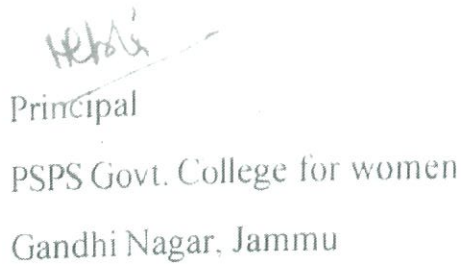 Principal
PSPS Govt. College for women
Gandhi Nagar, Jammu